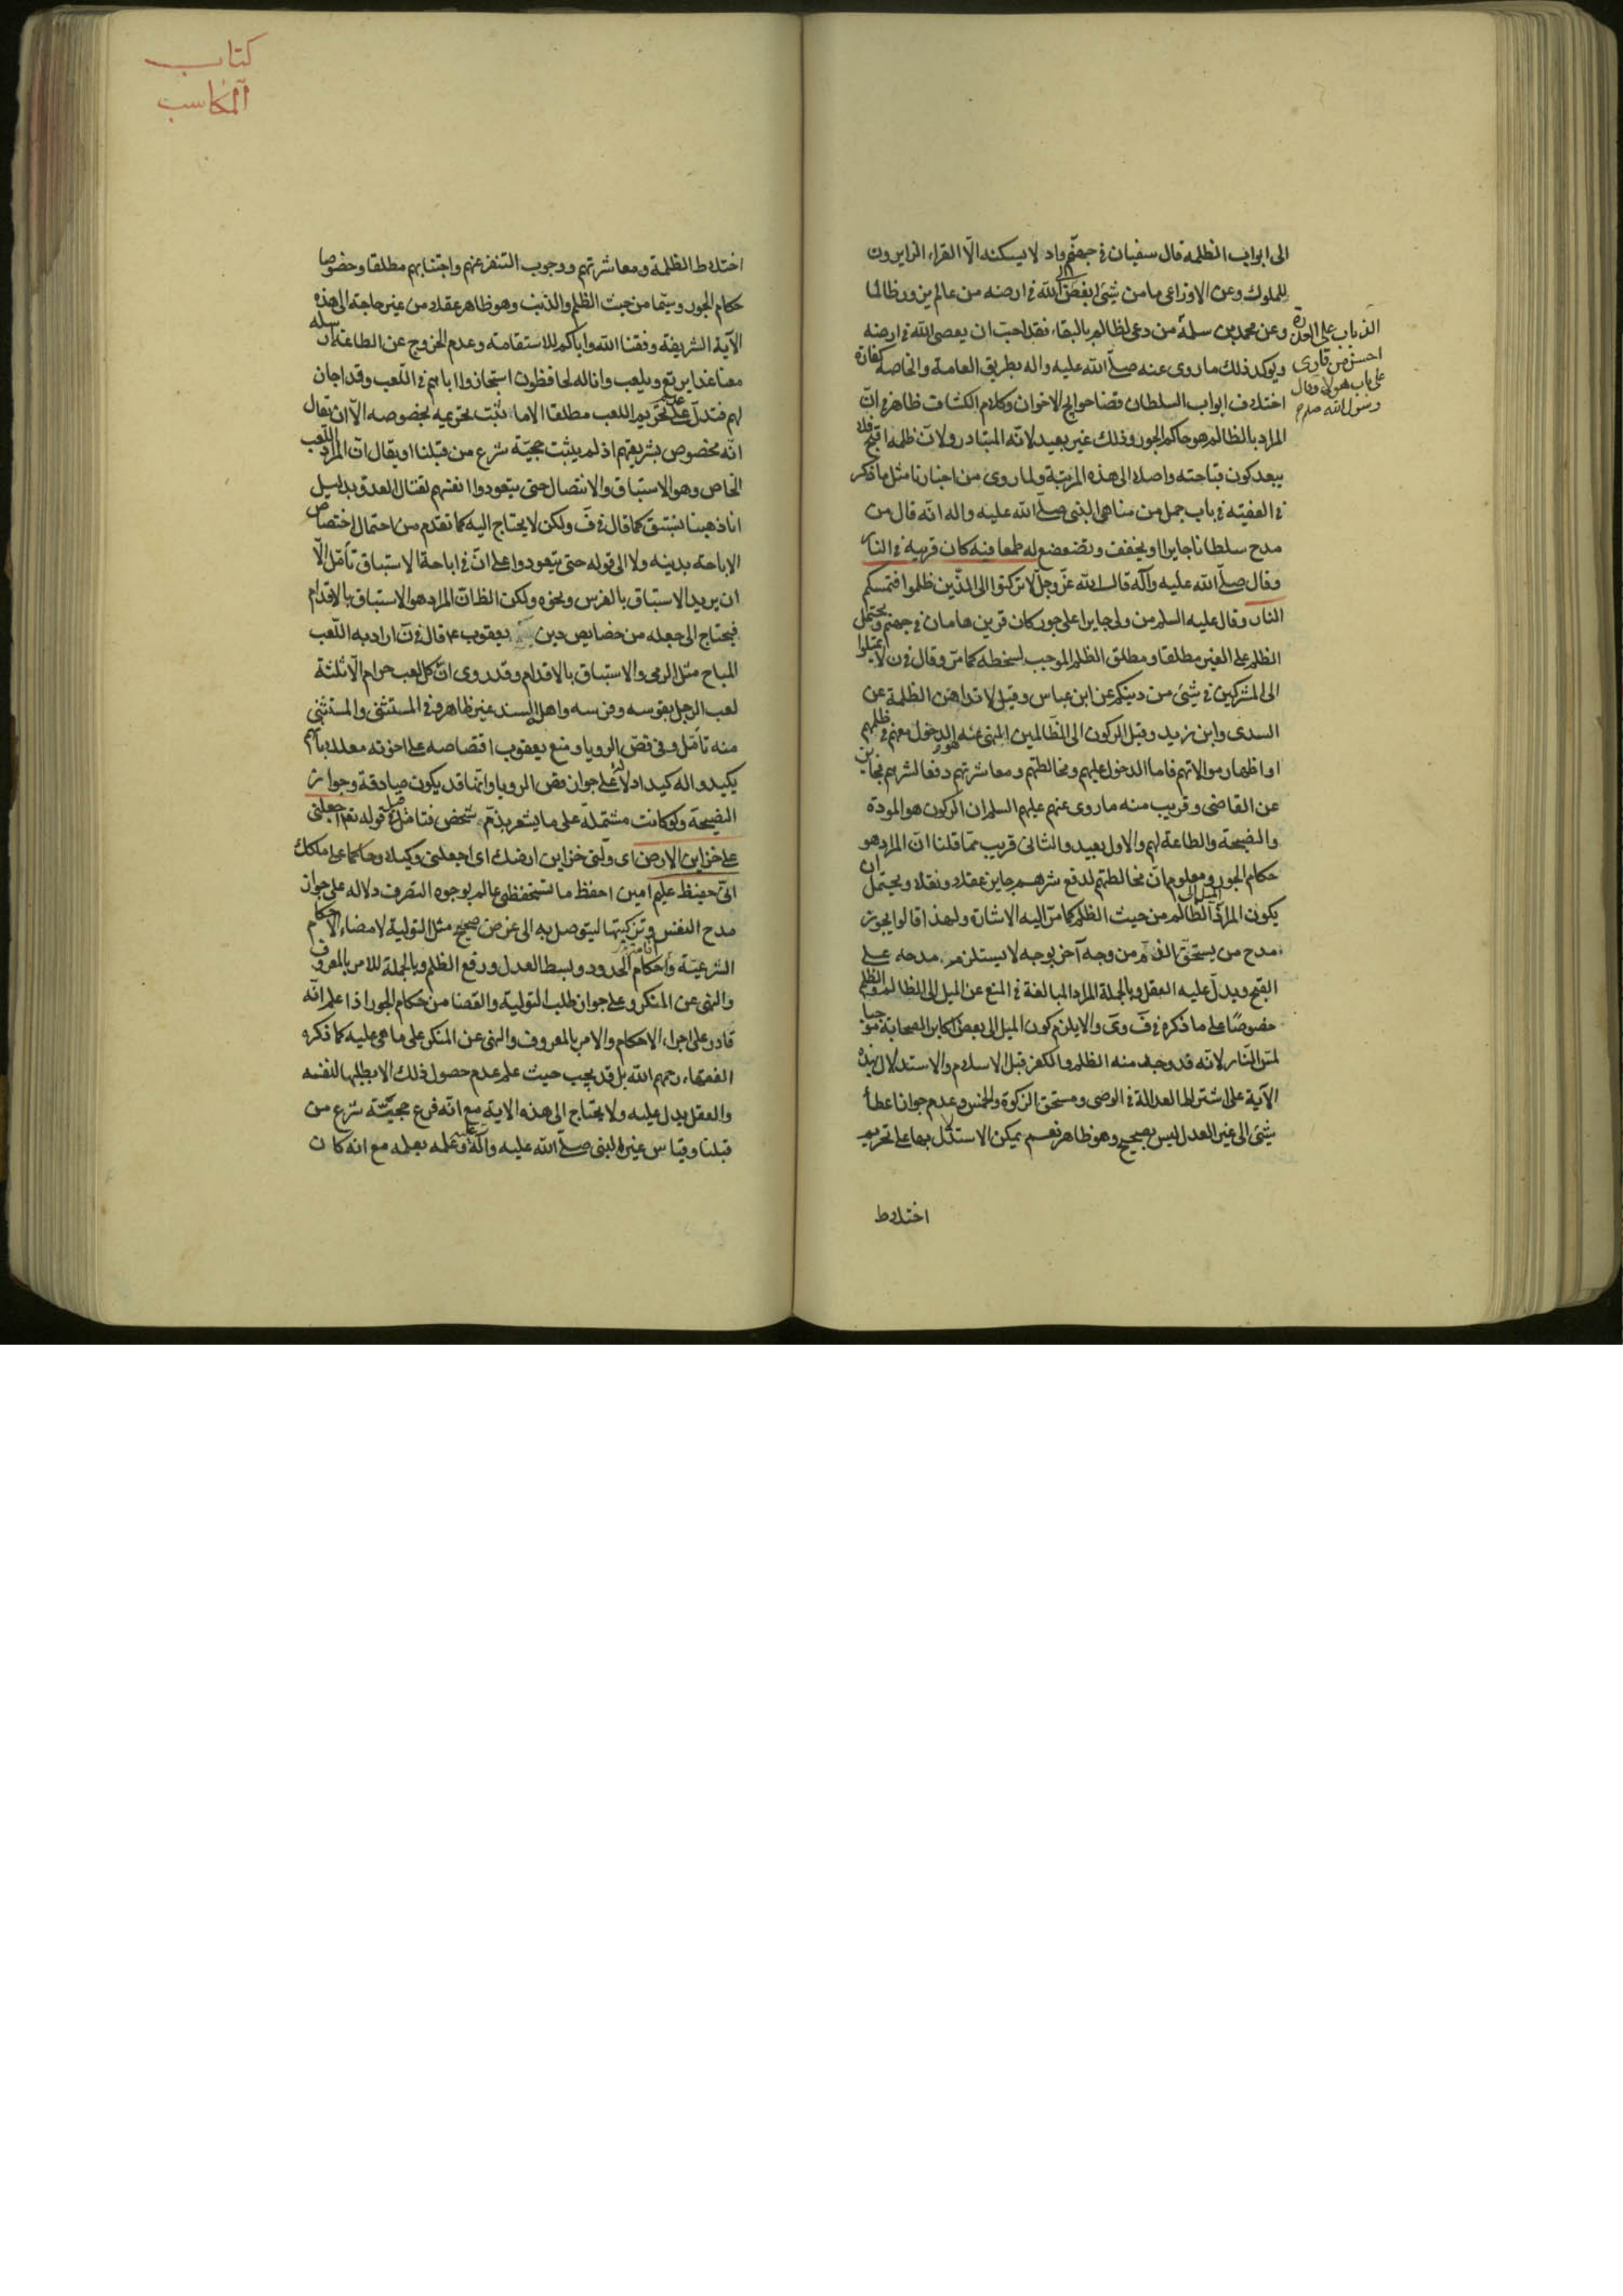 الى ابواب الظلمة قال سفيان في جهنم واد لا يسكنه الّا القراء الزايرون
للملوك وعن الاوزاعي ما من شيئ ابغض الى الله في ارضه من عالم يزور ظالما
وعن محمد بن سلمة من دعى لظالم بالبقاء فقد احبّ ان يعصى الله في ارضه
الذباب على العذرة
احسن من قارى
على باب هولاء وقال
رسول الله صلم
ويوكد ذلك ما روى عنه صلّى الله عليه واله بطريق العامة والخاصة كفارة
اختلاف ابواب السلطان قضا حوايج الاخوان وكلام الكشاف ظاهر في انّ
المراد بالظالم هو حاكم الجور وذلك غير بعيد لانه المتبادر ولانّ ظلمه اقبح فلا
يبعد كون قباحته واصلا الى هذه المرتبة ولما روى من اخبارنا مثل ما ذكر
في الفقيه في باب جمل من مناهى النبى صلّى الله عليه واله انه قال من
مدح سلطانا جايرا او يخفف وتضعضع له طمعا فيه كان قرينه في النار
وقال صلّى الله عليه وآله قال الله عزّ وجلّ لا تركنوا الى الذّين ظلموا فتمسكم
النار وقال عليه السلم من ولى جايرا على جور كان قرين هامان في جهنم ويحتمل
الظلم على الغير مطلقا ومطلق الظلم الموجب لسخطه كما مرّ وقال في ن لا تميلوا
الى المشركين في شيئ من دينكم عن ابن عباس وقيل لا تداهن الظلمة عن
السدى وابن زيد وقيل الركون الى الظّالمين المنهى عنه هو الدخول معهم في ظلمهم
او اظهار موالاتهم فاما الدخول عليهم ومخالطتهم ومعاشرتهم دفعا لشرهم فجايز
عن القاضى وقريب منه ما روى عنهم عليهم السلم ان الركون هو المودة
والنصيحة والطاعة لهم والاول بعيد والثانى قريب ممّا قلنا انّ المراد هو
حكام الجور ومعلوم انّ مخالطتهم لدفع شرهم جايز عقلا ونقلا ويحتمل ان
يكون المراد الميل الى الظالم من حيث الظلم كما مرّ اليه الاشارة ولهذا قالوا يجوز
مدح من يستحقّ الذم من وجه آخر بوجه لا يستلزم مدحه على
القبح ويدلّ عليه العقل وبالجملة المراد المبالغة في المنع عن الميل الى الظالم والظلم
خصوصًا على ما ذكره في فَ وىَ والا يلزم كون الميل الى بعض اكابر الصحابة موجبا
لمسّ النّار لانّه قد وجد منه الظلم والكفر قبل الاسلام والاستدلال بهذه
الآية على اشتراط العدالة في الوصى ومستحق الزكوة والخمس وعدم جواز اعطأ
شيئ الى غير العدل ليس بصحيح وهو ظاهر نعم يمكن الاستدلال بها على تحريم
اختلاط
كتاب
المكاسب
اختلاط الظلمة ومعاشرتهم ووجوب التنفر عنهم واجتنابهم مطلقا وخصوصا
حكام الجور وسيّما من حيث الظلم والذنب وهو ظاهر عقلا من غير حاجة الى هذه
الآية الشريفة وفقنا الله واياكم للاستقامة وعدم الخروج عن الطاعة ارسله
معنا غدا يرتع ويلعب وانا له لحافظون استجازوا اباهم في اللّعب وقد اجاز
لهم فتدلّ على عدم تحريم اللعب مطلقا الا ما ثبت تحريمه بخصوصه الّا ان يقال
انّه مخصوص بشريعتهم اذ لم يثبت حجيّة شرع من قبلنا او يقال انّ المراد اللّعب
الخاص وهو الاستباق والانتضال حتى يتعودوا انفسهم لقتال العدو بدليل
انا ذهبنا نستبق كما قال في فَ ولكن لا يحتاج اليه كما تقدم من احتمال اختصاص
الاباحة بدينه ولا الى قوله حتى يتعودوا على انّ في اباحة الاستباق تأمّل الّا
ان يريد الاستباق بالفرس ونحوه ولكن الظ انّ المراد هو الاستباق بالاقدام
فيحتاج الى جعله من خصايص دين يعقوب ع قال في نَ اراد به اللّعب
المباح مثل الرمى والاستباق بالاقدام وقد روى انّ كل لعب حرام الّا ثلثة
لعب الرجل بقوسه وفرسه واهله السند غير ظاهر وفي المستثنى والمستثنى
منه تأمّل وفى نقص الرويا ومنع يعقوب اقتصاصه على اخوته معللا بانّهم
يكيدوا له كيدا دلالة على جواز قصّ الرويا وانّها قد يكون صادقة وجواز
النصيحة ولو كانت مشتملة على ما يشعر بذمّ شخص فتامّل قوله تعم اجعلنى
على خزاين الارض اى ولّنى خزاين ارضك اى اجعلنى وكيلا وحاكما على ملكك
انّى حفيظ عليم امين احفظ ما تستحفظنى عالم بوجوه التصرف دلاله على جواز
مدح النفس وتزكيتها ليتوصل به الى غرض صحيح مثل التولية لامضاء الاحكام
الشرعيّة واحكام اقامة الحدود وبسط العدل ورفع الظلم وبالجملة للامر بالمعروف
والنهى عن المنكر وعلى جواز طلب التولية والقضا من حكام الجور اذا علم انّه
قادر على اجراء الاحكام والامر بالمعروف والنهى عن المنكر على ما هى عليه كما ذكره
الفقهاء رحمهم الله بل قد يجب حيث علم عدم حصول ذلك الا بطلبها لنفسه
والعقل يدل عليه ولا يحتاج الى هذه الاية مع انّه فرع حجيّته شرع من
قبلنا وقياس غير النبى صلّى الله عليه وآله عليه وعلمه بعلمه مع انه كان